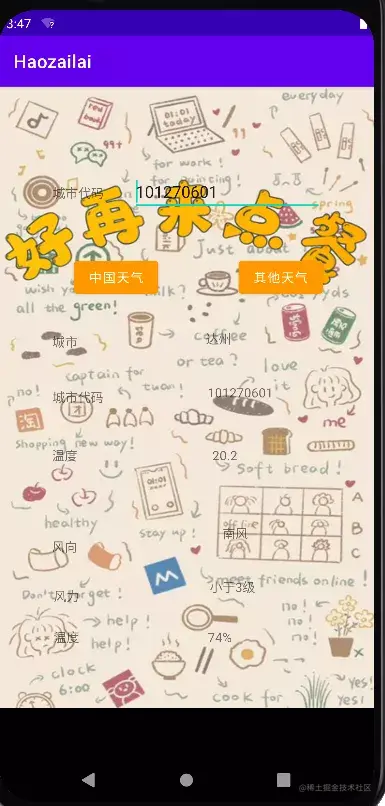 3:47
Haozailai
everyday
red book
01:01
today
99+
for work!
for painting!
城市代码 101270601
spring
好再来点餐
Just about
中国天气 其他天气
wish y
milk?
yyds
all the green!
城市 达州
coffee
or tea?
captain for
love
it
no!
tuan!
城市代码 101270601
团
淘
me
shopping new way!
温度 20.2
soft bread!
01:01
A
healthy
stay up!
off line
风向 南风
B
C
meet friends online!
Don't forget!
风力 小于3级
help!
no!
no!
no!
温度 74%
help!
clock
6:00
cook for
yes!
yes!
@稀土掘金技术社区